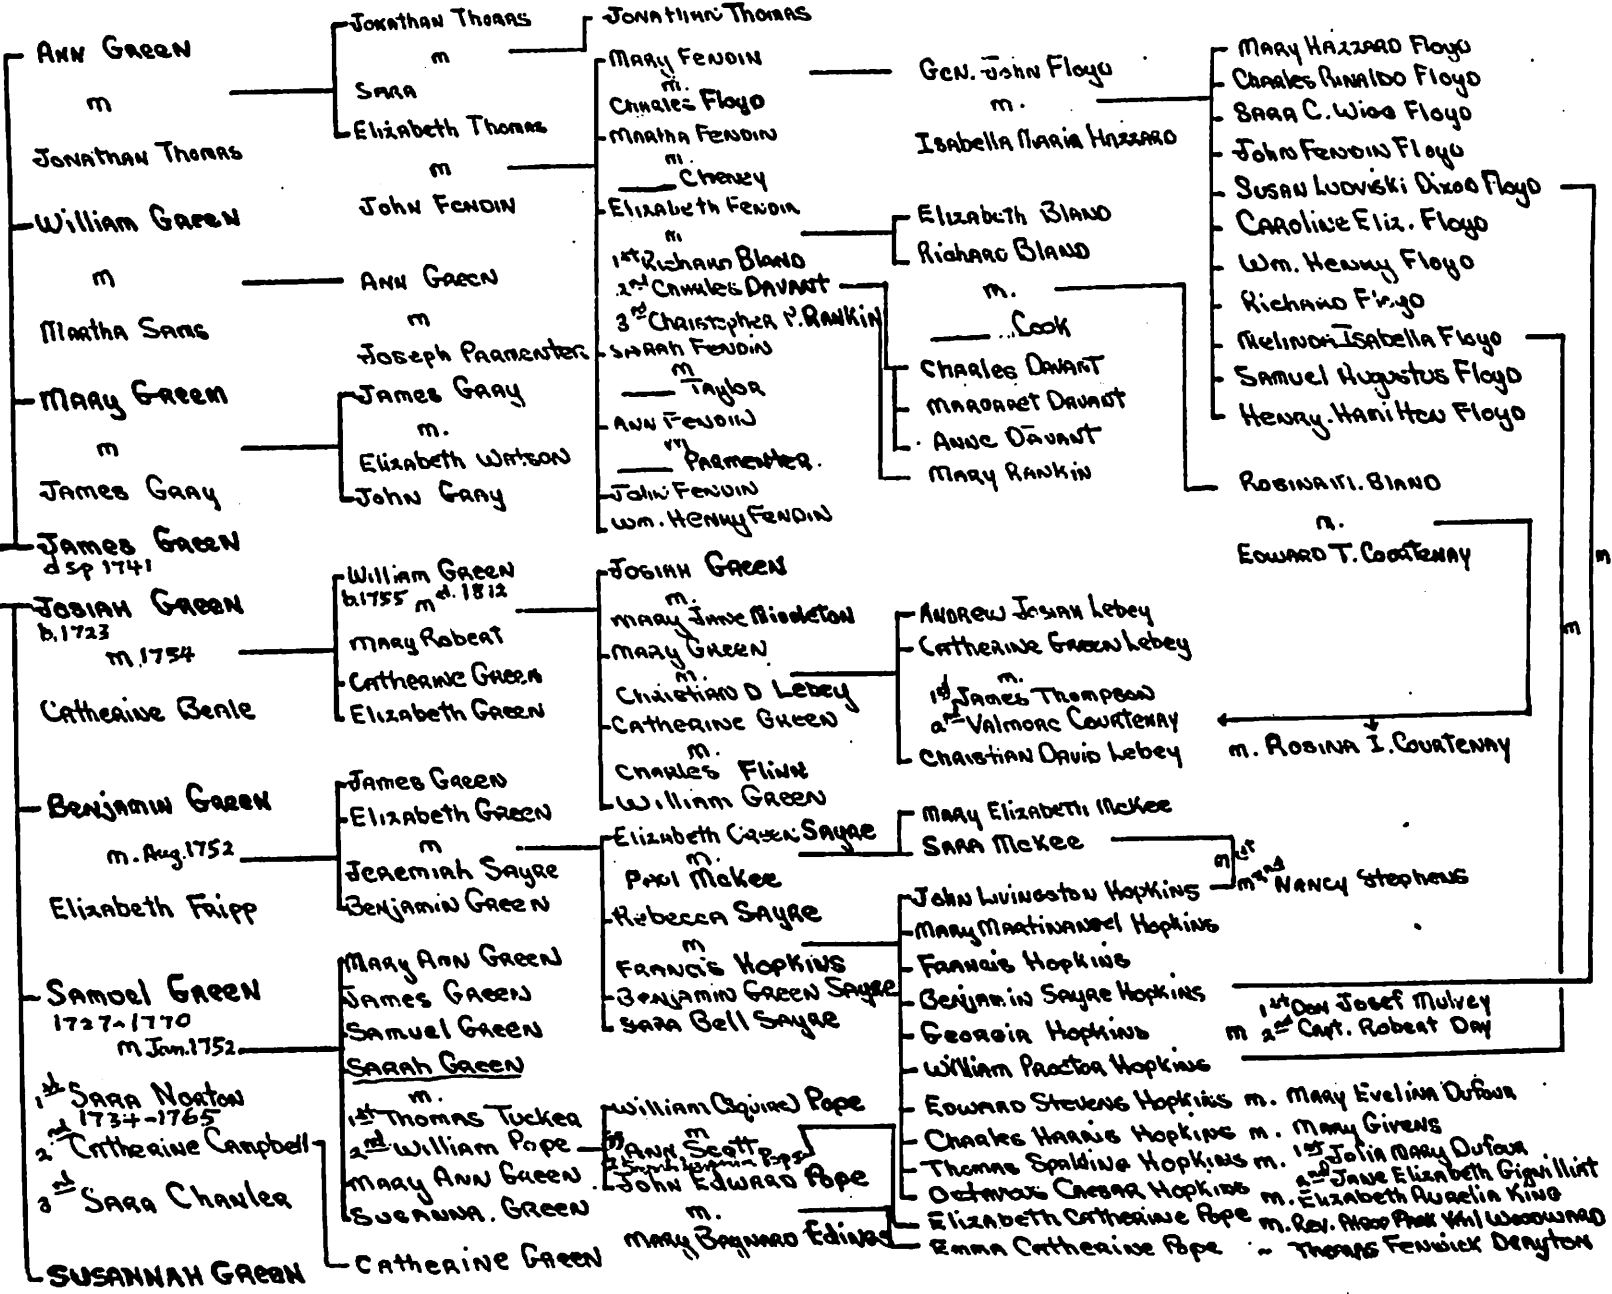 Ann Green
m
Jonathan Thomas
William Green
m
Martha Sams
Mary Green
m
James Gray
James Green
d sp 1741
Josiah Green
b. 1723
m. 1754
Catherine Beale
Benjamin Green
m. Aug. 1752
Elizabeth Fripp
Samuel Green
1727-1770
m Jan. 1752
1st Sara Norton
1734-1765
2nd Catherine Campbell
3rd Sara Chanler
Susannah Green
Jonathan Thomas
m
Sara
Elizabeth Thomas
m
John Fendin
Ann Green
m
Joseph Parmenter
James Gray
m.
Elizabeth Watson
John Gray
William Green
b. 1755 m d. 1812
Mary Robert
Catherine Green
Elizabeth Green
James Green
Elizabeth Green
m
Jeremiah Sayre
Benjamin Green
Mary Ann Green
James Green
Samuel Green
Sarah Green
m.
1st Thomas Tucker
2nd William Pope
Mary Ann Green
Susanna. Green
Catherine Green
Jonathan Thomas
Mary Fendin
m.
Charles Floyd
Martha Fendin
m.
Cheney
Elizabeth Fendin
m
1st Richard Bland
2nd Charles Davant
3rd Christopher P. Rankin
Sarah Fendin
m
Taylor
Ann Fendin
m
Parmenter.
John Fendin
Wm. Henry Fendin
Josiah Green
m.
Mary Jane Middleton
Mary Green
m.
Christian D Lebey
Catherine Green
m.
Charles Flinn
William Green
Elizabeth Green Sayre
m.
Paul McKee
Rebecca Sayre
m
Francis Hopkins
Benjamin Green Sayre
Sara Bell Sayre
William (Squire) Pope
m
Ann Scott
John Edward Pope
m.
Mary Baynard Edings
Gen. John Floyd
m.
Isabella Maria Hazzard
Elizabeth Bland
Richard Bland
m.
Cook
Charles Davant
Margaret Davant
Anne Davant
Mary Rankin
Andrew Josiah Lebey
Catherine Green Lebey
m.
1st James Thompson
2nd Valmore Courtenay
Christian David Lebey
Mary Elizabeth McKee
Sara McKee
m 1st
John Livingston Hopkins
m 2nd Nancy Stephens
Mary Martinangel Hopkins
Francis Hopkins
Benjamin Sayre Hopkins
Georgia Hopkins m 1st Don Josef Mulvey
2nd Capt. Robert Day
William Proctor Hopkins
Edward Stevens Hopkins m. Mary Evelina Dufour
Charles Harris Hopkins m. Mary Givens
Thomas Spalding Hopkins m. 1st Julia Mary Dufour
2nd Jane Elizabeth Gignilliat
Octavus Caesar Hopkins m. Elizabeth Aurelia King
Elizabeth Catherine Pope m. Rev. Woodward
Emma Catherine Pope ~ Thomas Fenwick Drayton
Mary Hazzard Floyd
Charles Rinaldo Floyd
Sara C. Wigg Floyd
John Fendin Floyd
Susan Ludviski Dixon Floyd
Caroline Eliz. Floyd
Wm. Henry Floyd
Richard Floyd
Melinda Isabella Floyd
Samuel Augustus Floyd
Henry. Hamilton Floyd
Robina M. Bland
m.
Edward T. Courtenay
m. Robina I. Courtenay
m
m